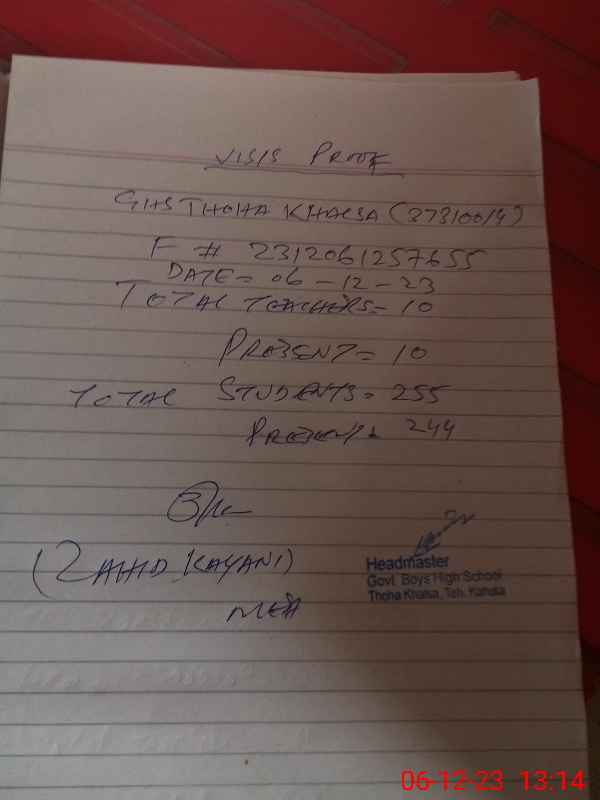 VISIS PROOF
GHS THOHA KHALSA (37310014)
F # 2312061257655
DATE= 06-12-23
TOTAL TEACHERS= 10
PRESENT= 10
TOTAL STUDENTS= 255
PRESENT= 244
(ZAHID KAYANI)
MEA
Headmaster
Govt. Boys High School
Thoha Khalsa, Teh. Kahuta
06-12-23 13:14